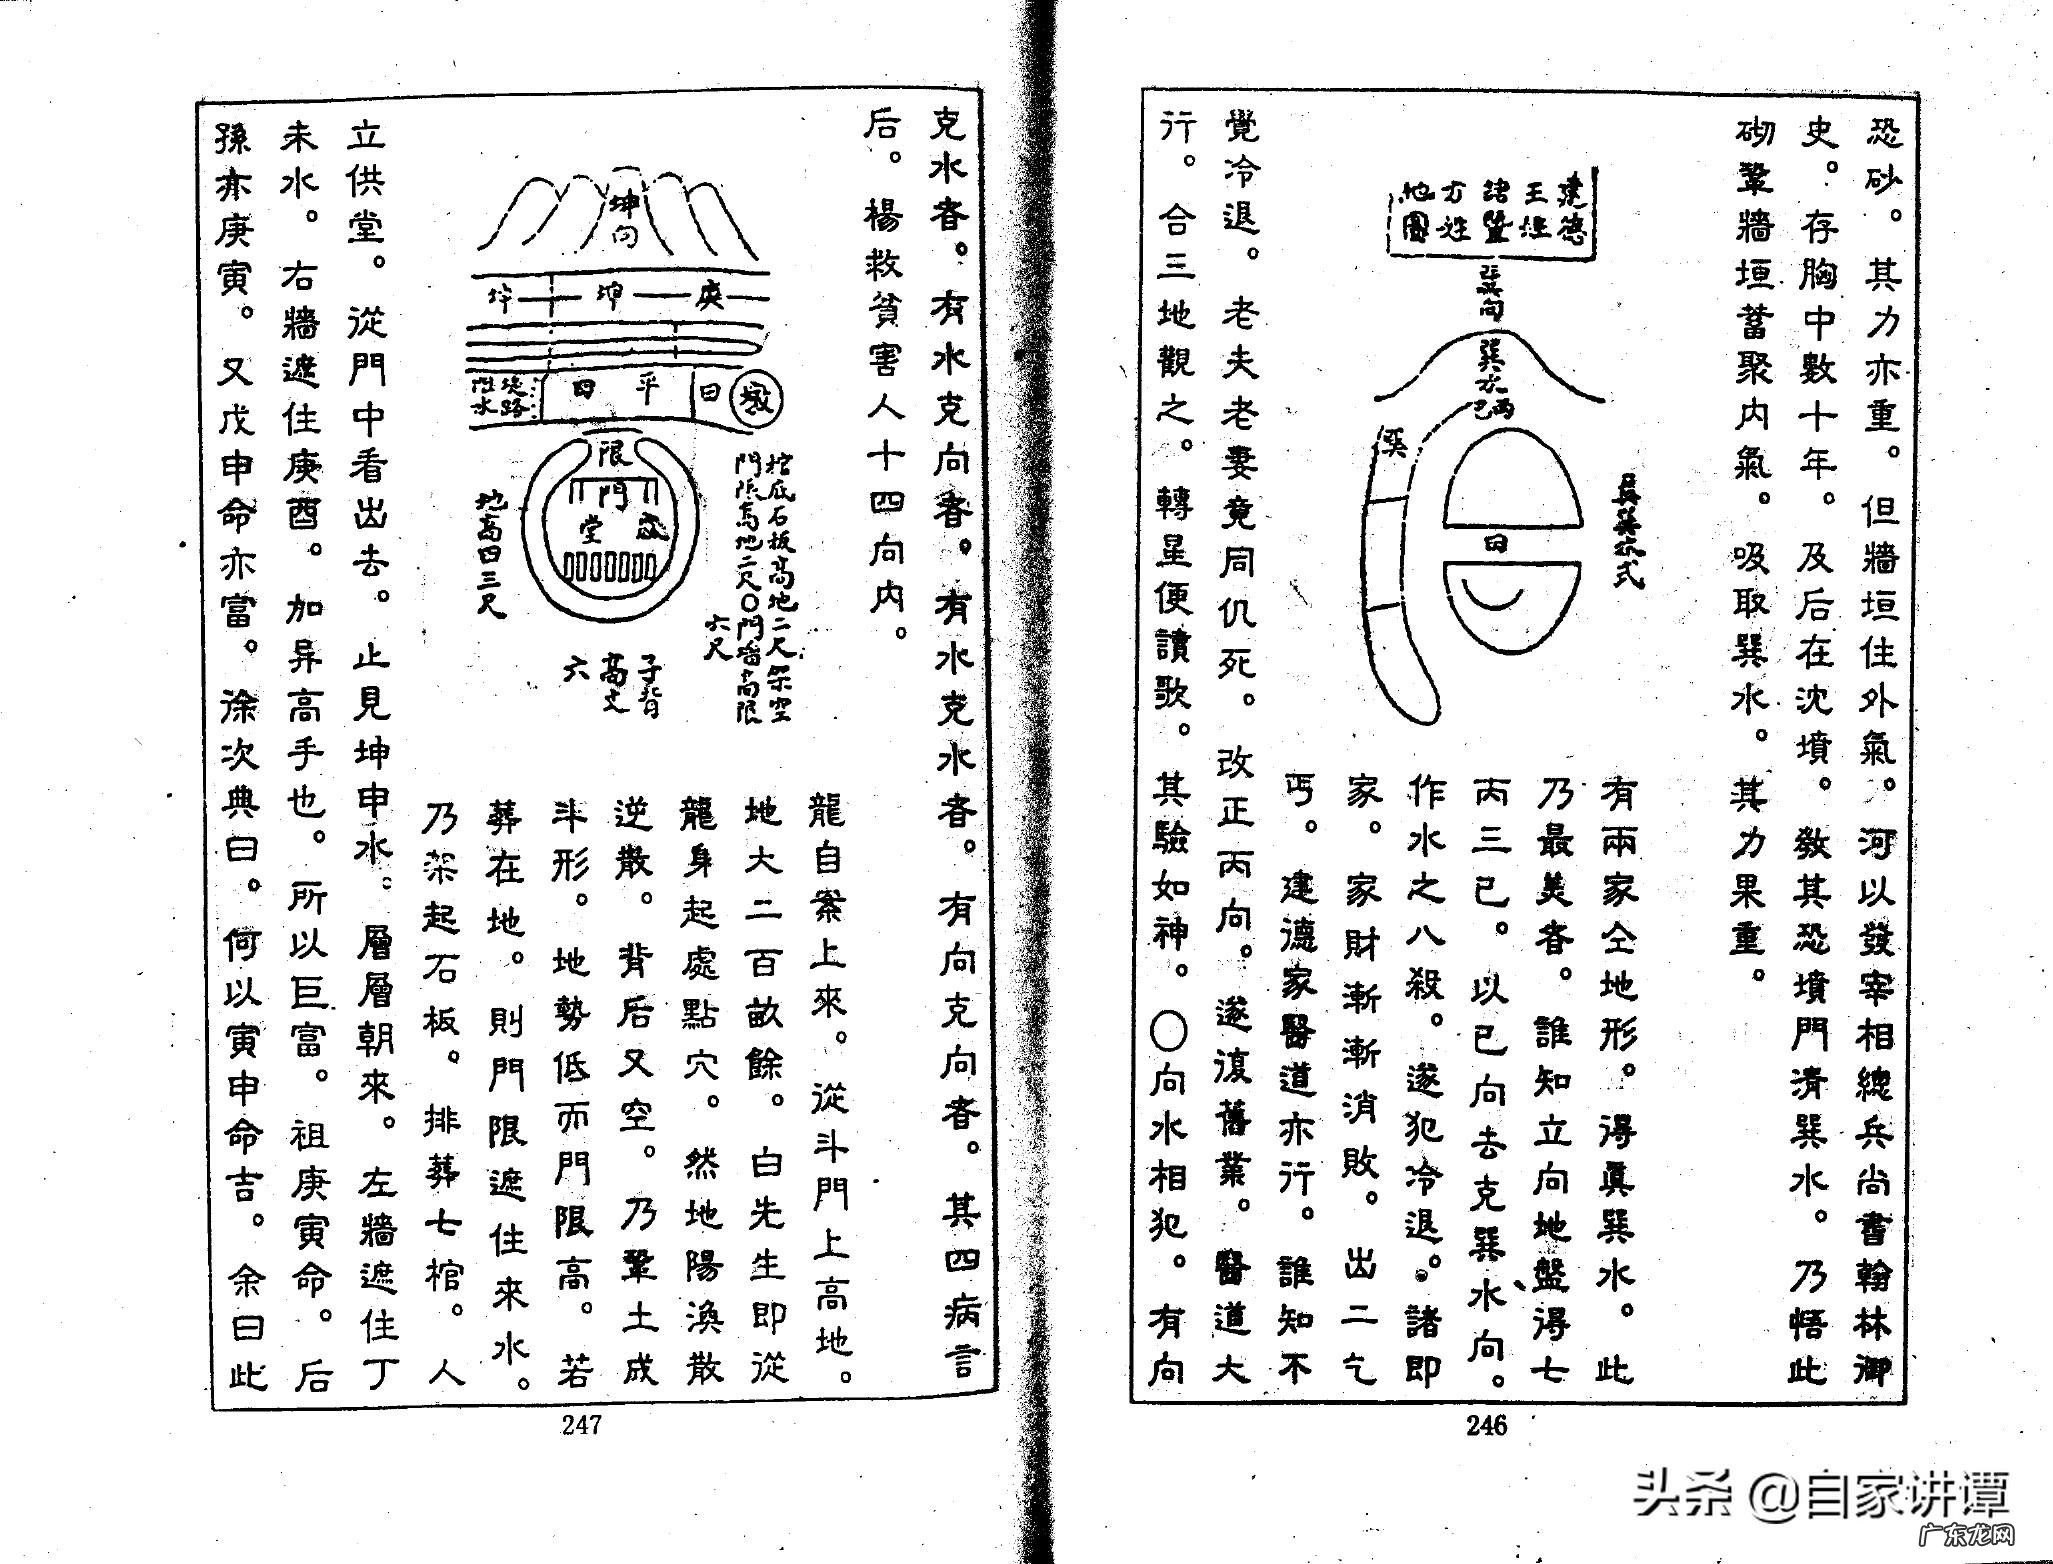 恐砂。其力亦重。但牆垣住外氣。河以發宰相總兵尚書翰林御
史。存胸中數十年。及后在沈墳。敎其恐墳門清巽水。乃悟此
砌鞏牆垣蓄聚内氣。吸取巽水。其力果重。
建德
王姓
諸暨
方姓
地圖
巽向
巽水
丙
巳
巽
田
有兩家仝地形。得眞巽水。此
乃最美者。誰知立向地盤得七
丙三巳。以巳向去克巽水向。
作水之八殺。遂犯冷退。諸即
家。家財漸漸消敗。出二乞
丐。建德家醫道亦行。誰知不
覺冷退。老夫老妻竟同仇死。改正丙向。遂復舊業。醫道大
行。合三地觀之。轉星便讀歌。其驗如神。〇向水相犯。有向
246
克水者。有水克向者。有水克水者。有向克向者。其四病言
后。楊救貧害人十四向内。
坤向
庚
坤
平田
田
墩
堤路
限
門
堂
棺底石板高地二尺架空
門限高地二尺〇門墻高限
六尺
地高田三尺
子背
高丈
六
龍自案上來。從斗門上高地。
地大二百畝餘。白先生即從
龍身起處點穴。然地陽渙散
逆散。背后又空。乃鞏土成
斗形。地勢低而門限高。若
葬在地。則門限遮住來水。
乃架起石板。排葬七棺。人
立供堂。從門中看出去。止見坤申水。層層朝來。左牆遮住丁
未水。右牆遮住庚酉。加异高手也。所以巨富。祖庚寅命。后
孫亦庚寅。又戊申命亦富。徐次典曰。何以寅申命吉。余曰此
247
头条 @自家讲谭
广东龙网